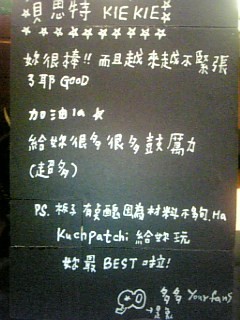 貝思特 KIE KIE
☆☆☆☆☆☆☆☆☆☆
妳很棒!! 而且越來越不緊張
了耶 GOOD
加油la☆
給妳很多很多鼓厲力
(超多)
PS. 板子有夠醜因為材料不夠. Ha
Kuchpatchi 給妳玩
妳最 BEST 啦!
多多 Your fans